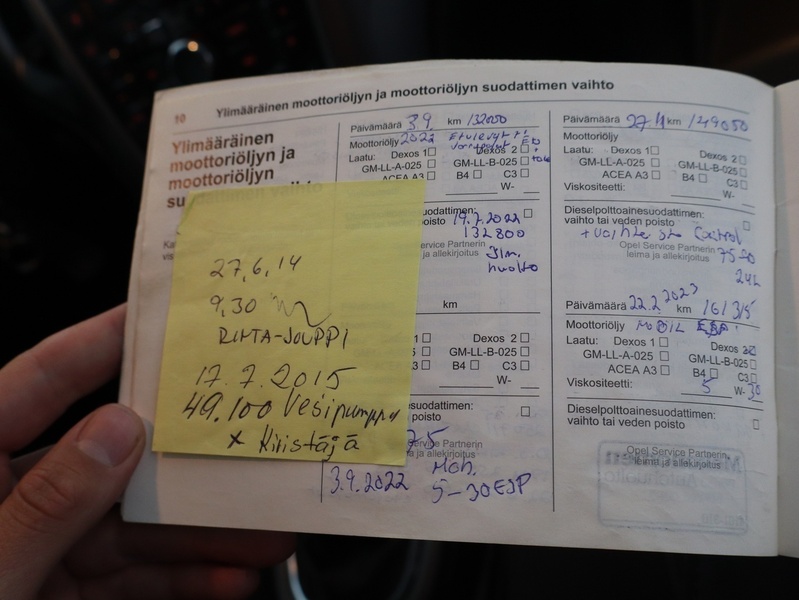 10
Ylimääräinen moottoriöljyn ja moottoriöljyn suodattimen vaihto
Ylimääräinen
moottoriöljyn ja
moottoriöljyn
27,6,14
9,30
RINTA-JOUPPI
17.7.2015
49.100 Vesipumppu
x Kiristäjä
Päivämäärä 3.9. km 132050
Moottoriöljy 2022 Etulevyt
Laatu: Dexos 1 Dexos 2
GM-LL-A-025 GM-LL-B-025
ACEA A3 B4 C3
W-
suodattimen: 19.7.2022
poisto 132800
Service Partnerin Ilm.
ja allekirjoitus huolto
km
1 Dexos 2
GM-LL-B-025
B4 C3
W-
suodattimen:
poisto
Service Partnerin
ja allekirjoitus
3.9.2022 5-30 ESP
Päivämäärä 27.11 km 149050
Moottoriöljy
Laatu: Dexos 1 Dexos 2
GM-LL-A-025 GM-LL-B-025
ACEA A3 B4 C3
Viskositeetti: W-
Dieselpolttoainesuodattimen:
vaihto tai veden poisto
Opel Service Partnerin
leima ja allekirjoitus
Päivämäärä 22.2.2023 161315
Moottoriöljy MOBIL ESP
Laatu: Dexos 1 Dexos 2
GM-LL-A-025 GM-LL-B-025
ACEA A3 B4 C3
Viskositeetti: 5 W-30
Dieselpolttoainesuodattimen:
vaihto tai veden poisto
Opel Service Partnerin
leima ja allekirjoitus